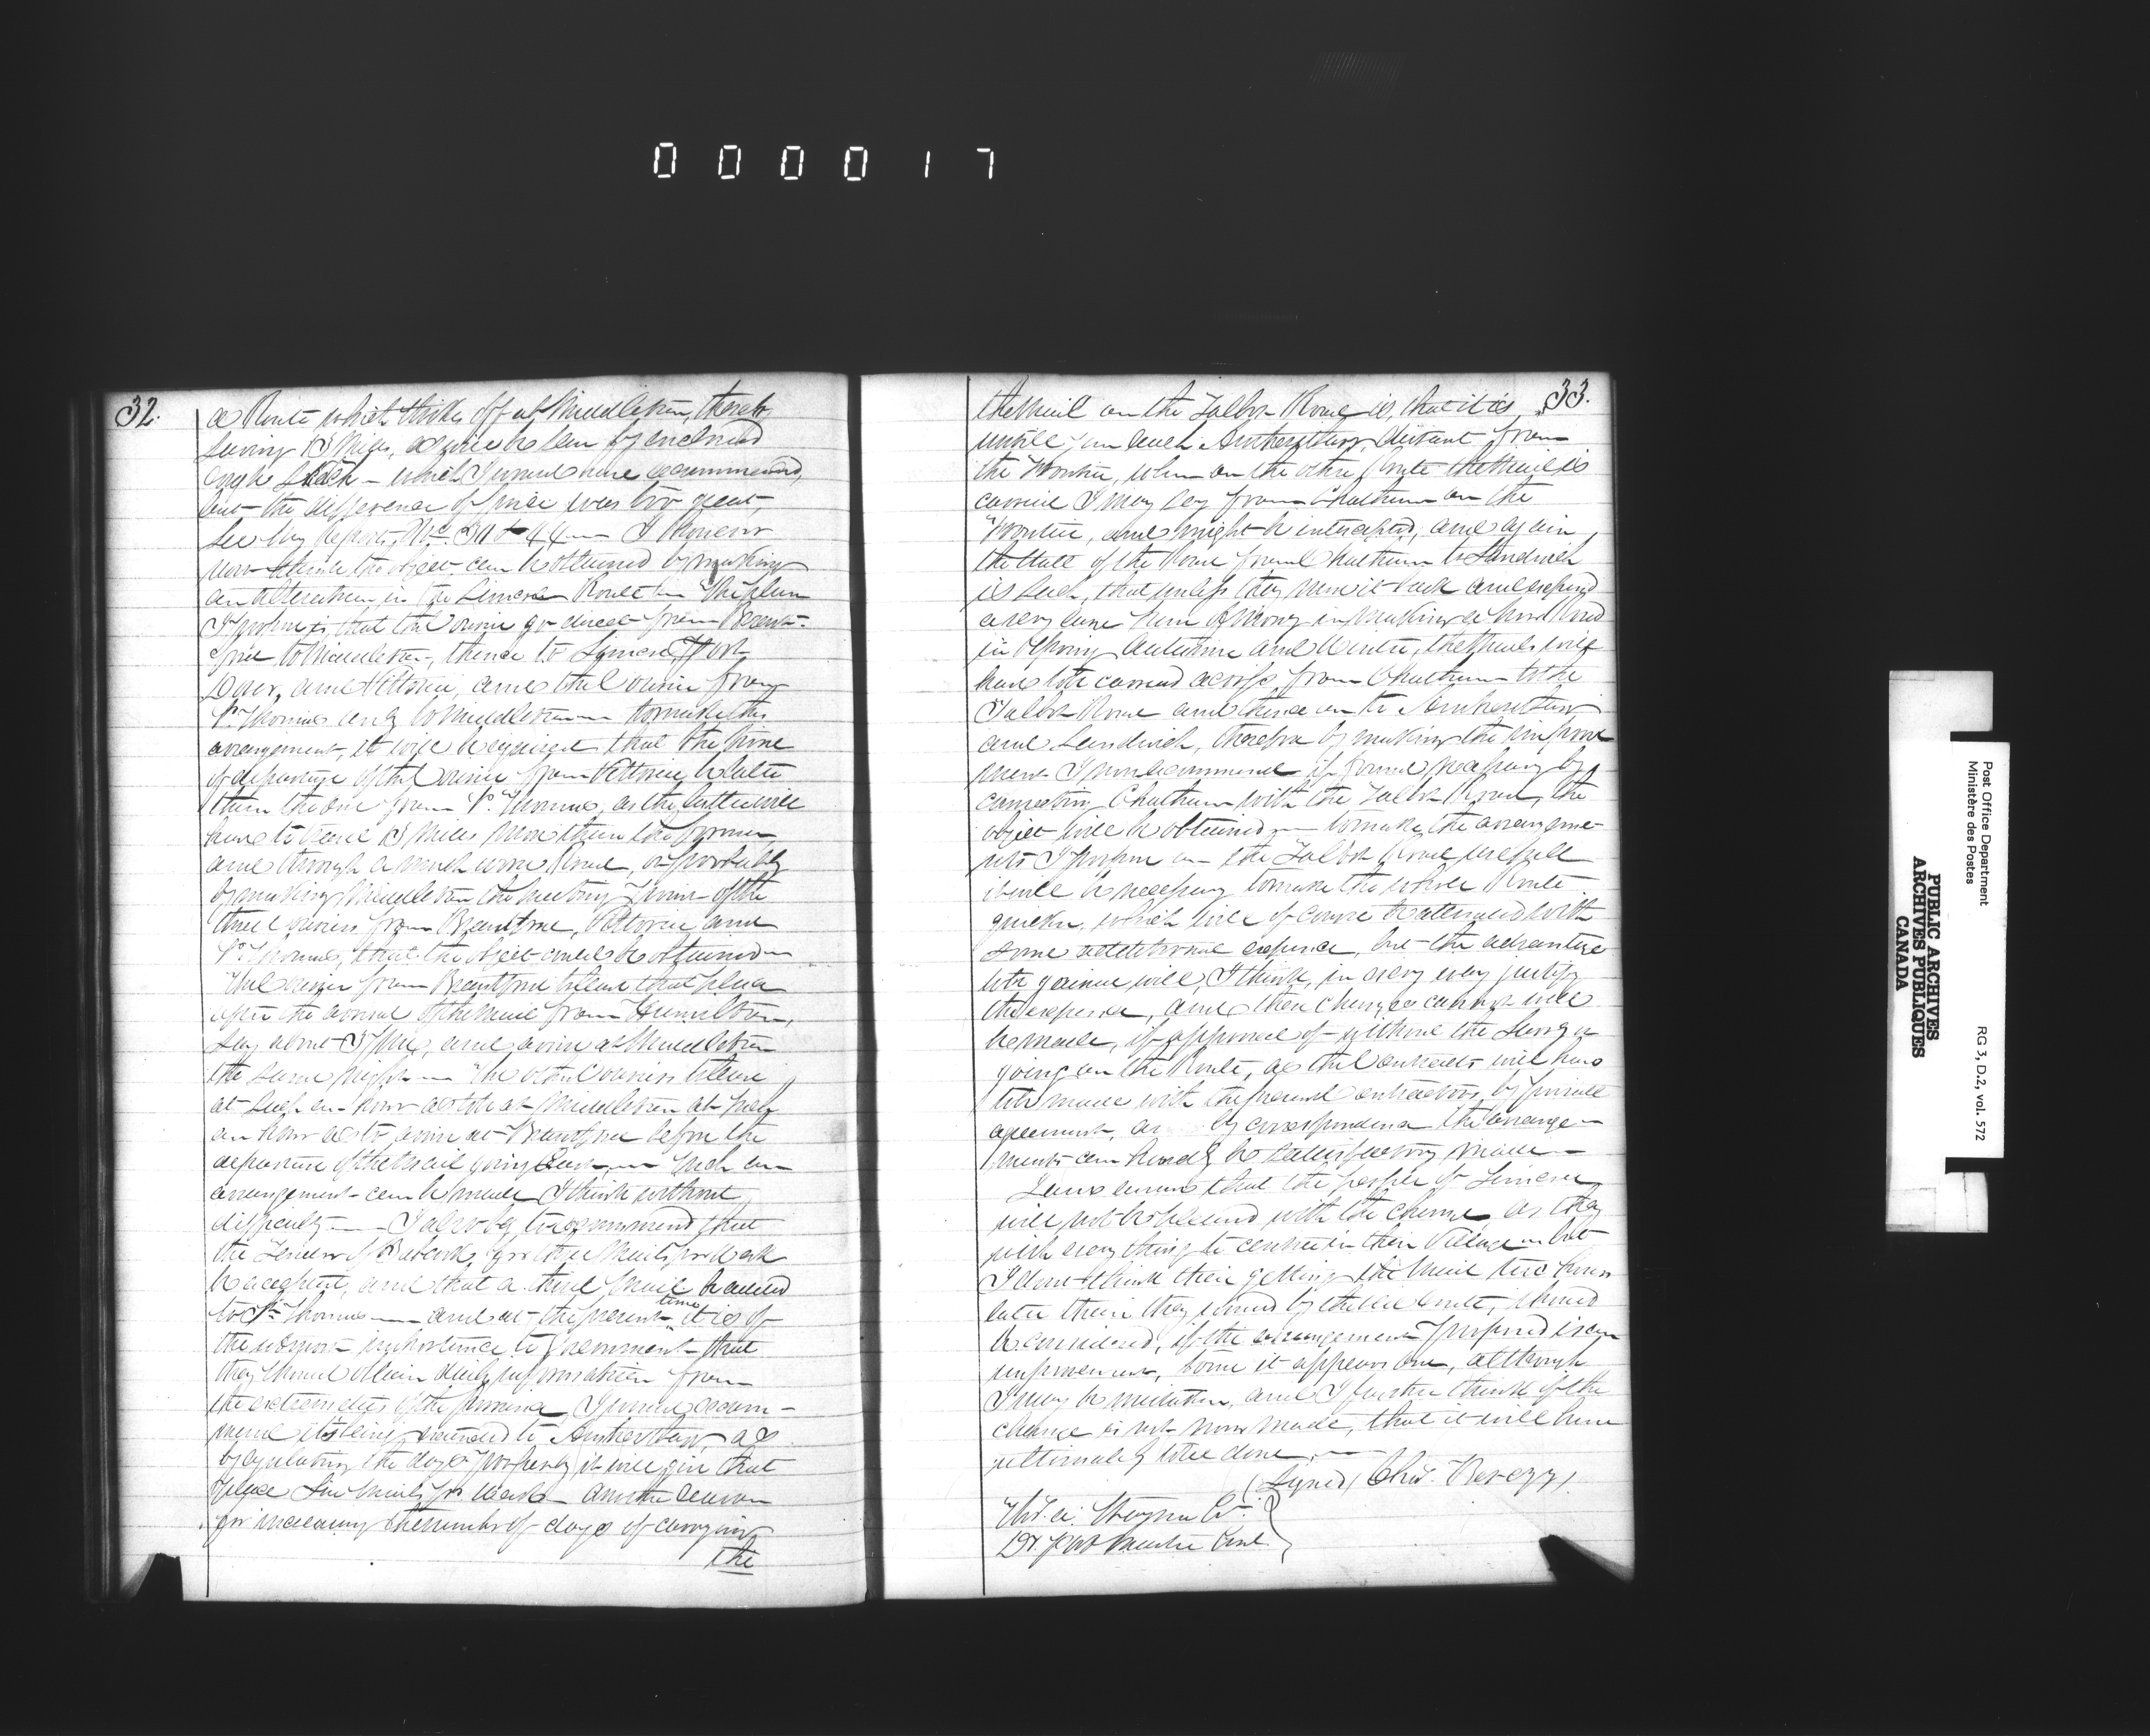 0 0 0 0 1 7
32.
a Route which strikes off at Middleton, thereby
saving 13 Miles, as will be seen by enclosed
rough sketch - which I would have recommended,
but the difference of price was too great,
See my Report, No. 311 & 44 — I however
now think the object can be obtained by making
an alteration in the Simcoe Route — The plan
I propose is, that the Courier go direct from Brant-
ford to Middleton, thence to Simcoe, Port
Dover, and Vittoria, and the Courier from
St. Thomas only to Middleton — to make this
arrangement, it will be required that the time
of departure of the Courier from Vittoria be later
than the one from St. Thomas, as the latter will
have to travel 13 Miles more than the former,
and through a much worse Road, or probably
by making Middleton the meeting Point of the
three Couriers from Brantford, Vittoria and
St. Thomas, that the object could be obtained —
The Courier from Brantford to leave that place
after the arrival of the Mail from Hamilton,
say about 3 PM, and arrive at Middleton
the same night — The other Couriers to leave
at such an hour as to be at Middleton at such
an hour as to arrive at Brantford before the
departure of the Mail going East — Such an
arrangement can be made I think without
difficulty — I also beg to recommend that
the Tender of Babcock, for three Mails per Week
be accepted, and that a third Mail be added
to St. Thomas — and as at the present time it is of
the utmost importance to Government that
they should obtain daily information from
the extremities of the province, I would recom-
mend its being extended to Amherstburg, as
by regulating the days properly it will give that
place Six Mails per Week — Another reason
for increasing the number of days of carrying
the
33.
the Mail on the Talbot Road is, that it is,
until you reach Amherstburg, distant from
the Frontier, when on the other Route the Mail is
carried I may say from Chatham on the
Frontier, and might be intercepted; and again,
the state of the Road from Chatham to Sandwich
is such, that unless they run it back and expend
a very large sum of Money in making a hard Road
in Spring Autumn and Winter, the Mails will
have to be carried across from Chatham to the
Talbot Road and thence on to Amherstburg
and Sandwich, therefore by making the improve
ment I now recommend if found necessary by
connecting Chatham with the Talbot Road, the
object will be obtained — to make the arrangeme-
nts I propose on the Talbot Road useful
it will be necessary to make the whole Route
quicker, which will of course be attended with
some additional expense, but the advantage
to be gained will, I think, in every way justify
the expense, and these changes cannot well
be made, if approved of without the Surveyor
going on the Route, as the Contracts will have
to be made with the present contractors by private
agreement, as by correspondence the arrange-
ments can hardly be satisfactory made —
I am aware that the people of Simcoe
will not be pleased with the change, as they
wish every thing to center in their Village — but
I don't think their getting the Mail two hours
later than they would by the old Route, should
be considered, if the arrangement proposed is an
improvement, to me it appears one, although
I may be mistaken, and I further think if the
change is not now made, that it will have
ultimately to be done —
(Signed) Chs. Berczy.
Thos. A. Stayner Esq.
Dy. Post Master Genl.
Post Office Department
Ministère des Postes
RG 3, D.2, vol. 572
PUBLIC ARCHIVES
ARCHIVES PUBLIQUES
CANADA